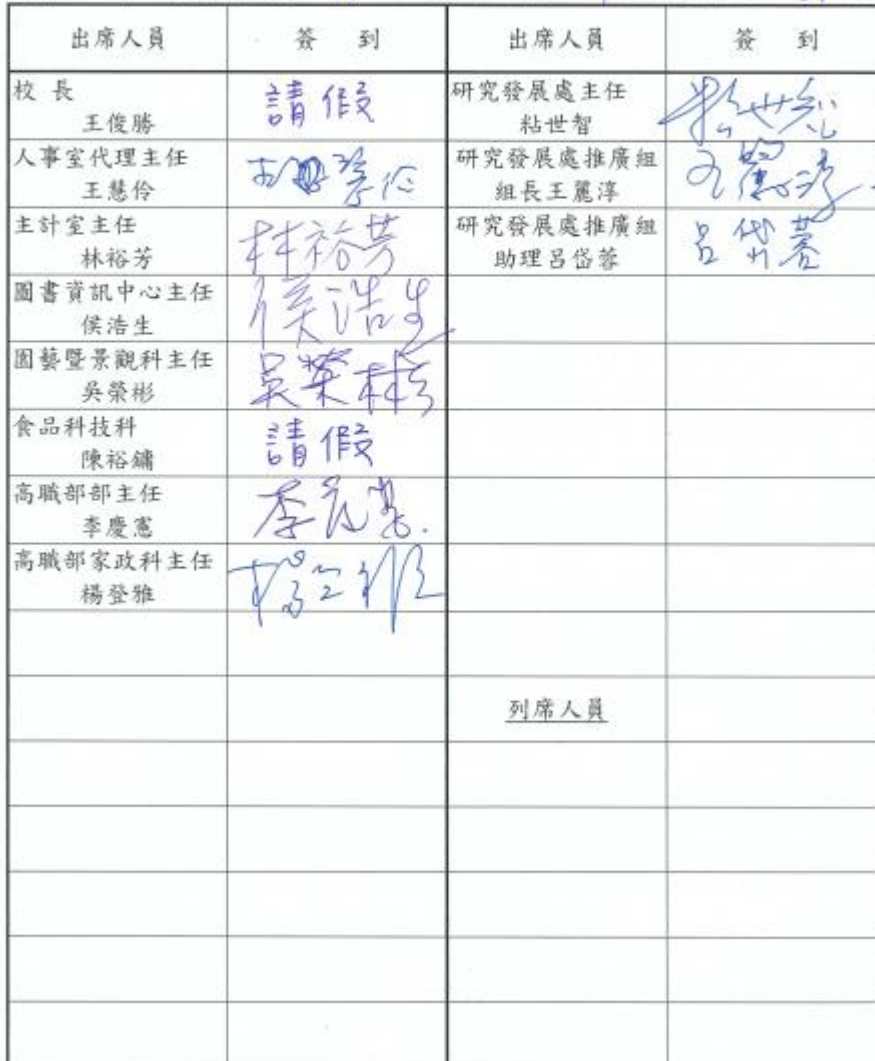 出席人員 簽到 出席人員 簽到
校長
王俊勝 請假
研究發展處主任
粘世智 粘世智
人事室代理主任
王慧伶
研究發展處推廣組
組長王麗淳
主計室主任
林裕芳 林裕芳
研究發展處推廣組
助理呂岱蓉 呂岱蓉
圖書資訊中心主任
侯浩生 侯浩生
園藝暨景觀科主任
吳榮彬 吳榮彬
食品科技科
陳裕鏞 請假
高職部部主任
李慶憲
高職部家政科主任
楊登雅
列席人員